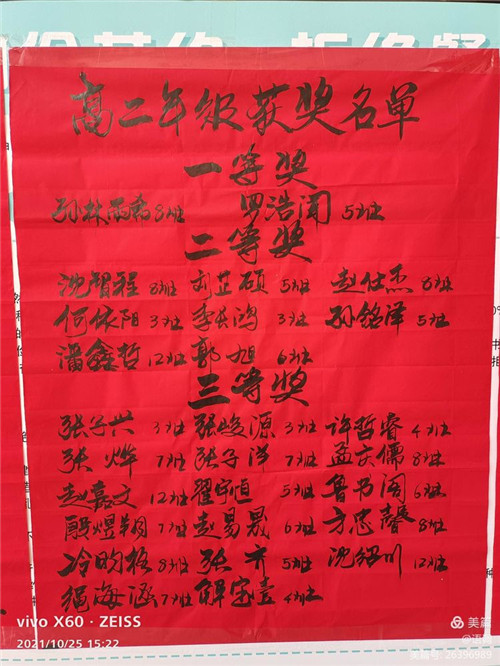 高二年级获奖名单
一等奖
孙林雨希 8班 罗浩闻 5班
二等奖
沈智程 8班 刘芷硕 5班 赵仕杰 8班
何依阳 3班 李长鸿 3班 孙铭泽 5班
潘鑫哲 12班 郭旭 6班
三等奖
张子兴 3班 张峻源 3班 许哲睿 4班
张烨 7班 张子洋 7班 孟庆儒 8班
赵嘉文 12班 翟宇恒 5班 鲁书阁 6班
7班 赵易晟 6班 方忠馨 8班
冷昀格 8班 张 5班 沈绍川 12班
绳海涵 7班 解宝壹 4班
vivo X60 · ZEISS
2021/10/25 15:22
美篇